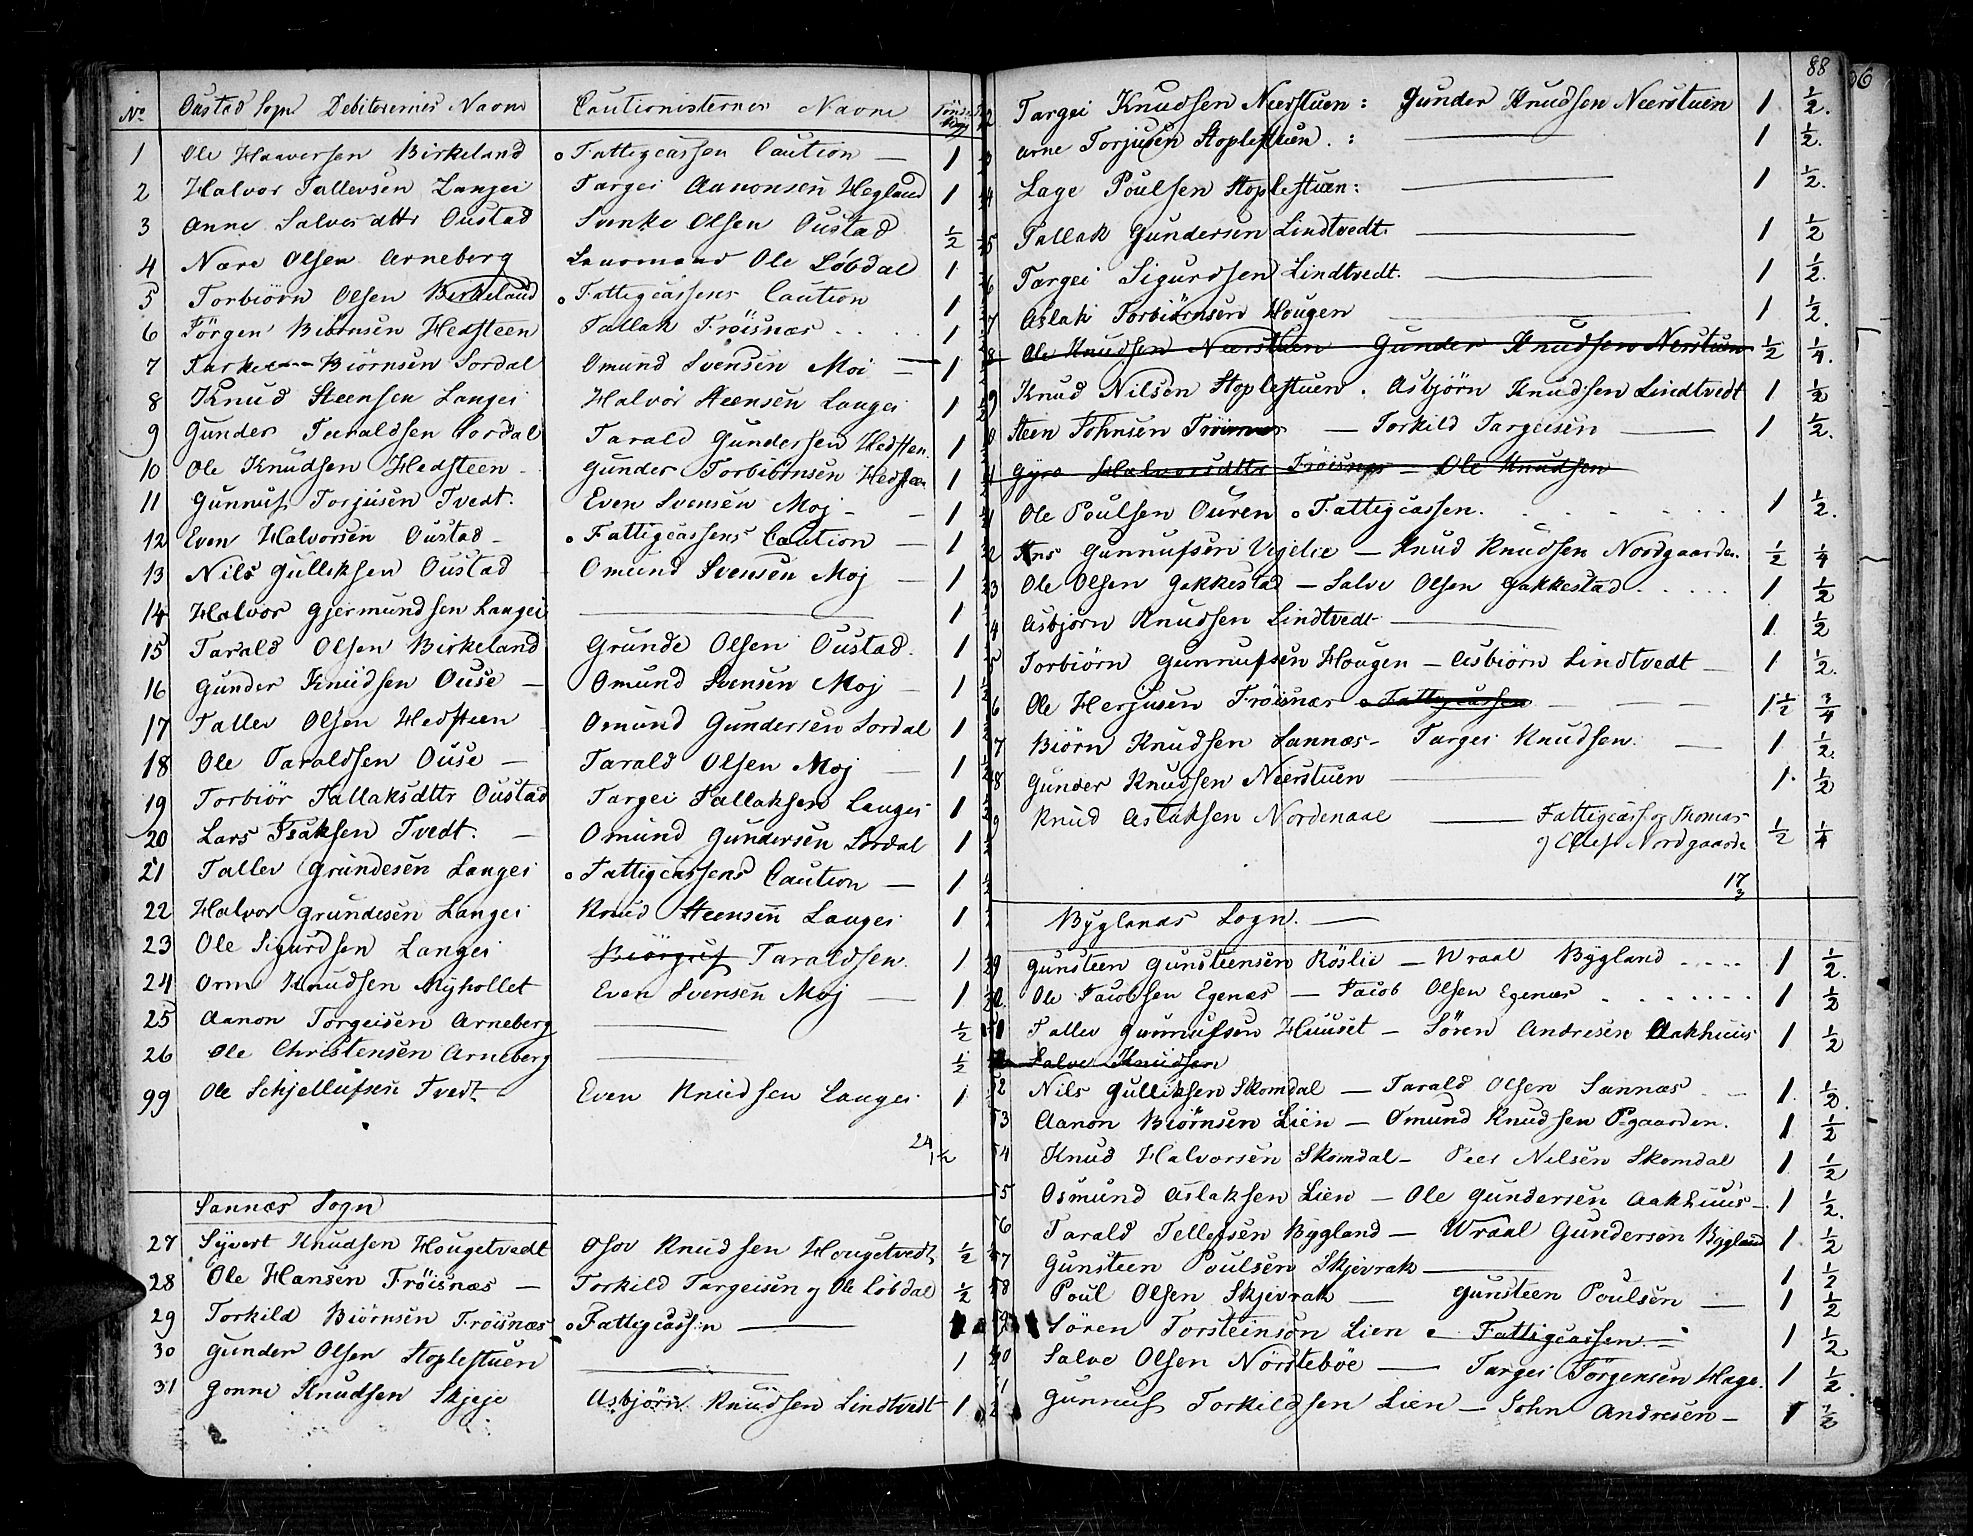 No Oustad Sogn Debitorernes Navne Cautionisternes Navne
1 Ole Haaversen Birkeland Fattigcassen Caution — 1
2 Halvor Tallevsen Langei Targei Aanonsen Hegland 1
3 Anne Salvesdttr Oustad Sunke Olsen Oustad ½
4 Nære Olsen Arneberg Ole Løbdal 1
5 Torbiørn Olsen Birkeland Fattigcassens Caution 1
6 Jørgen Biørnsen Hedsteen Tallak Frøisnæs 1
7 Biørnsen Sordal Omund Svensen Moi — 1
8 Knud Steensen Langei Halvor Steensen Langei 1
9 Gunder Taraldsen Sordal Tarald Gundersen Hedsteen 1
10 Ole Knudsen Hedsteen Gunder Torbiørnsen Hedsteen 1
11 Gunnuf Torjusen Tvedt. Even Svensen Moj — 1
12 Even Halvorsen Oustad — Fattigcassens Caution — 1
13 Nils Gulliksen Oustad Omund Svensen Moj — 1
14 Halvor Gjermundsen Langei ——— 1
15 Tarald Olsen Birkeland Grunde Olsen Oustad. 1
16 Gunder Knudsen Ouse — Omund Svensen Moj — 1
17 Tallev Olsen Hedsteen Omund Gundersen Sordal 1
18 Ole Taraldsen Ouse — Tarald Olsen Moj — 1
19 Torbiør Tallaksdttr Oustad Targei Tallaksen Langei 1
20 Lars Isaksen Tvedt. — Omund Gundersen Sordal 1
21 Tallev Grundesen Langei Fattigcassens Caution — 1
22 Halvor Grundesen Langei Knud Steensen Langei 1
23 Ole Sigurdsen Langei Biørguf Taraldsen. 1
24 Orm Knudsen Nyhollet Even Svensen Moj — 1
25 Aanon Torgeisen Arneberg ——— ½
26 Ole Christensen Arneberg ——— ½
99 Ole Schjellufsen Tvedt Even Knudsen Langei 1
24
½
Sannæs Sogn
27 Syvert Knudsen Hougetvedt Osov Knudsen Hougetvedt ½
28 Ole Hansen Frøisnæs — Torkild Targeisen og Ole Løbdal ½
29 Torkild Biørnsen Frøisnæs Fattigcassen ———
30 Gunder Olsen Stoplestuen ——— 1
31 Gonne Knudsen Skjeje Asbjørn Knudsen Lindtvedt 1
88
Targei Knudsen Neerstuen: Gunder Knudsen Neerstuen 1 ½.
Arne Torjusen Stoplestuen. : ——— 1 ½.
Lage Poulsen Stoplestuen: ——— 1 ½.
Tallak Gundersen Lindtvedt. ——— 1 ½
Targei Sigurdsen Lindtvedt. ——— 1 ½.
Aslak Torbiørnsen Hougen ——— 1 ½.
Ole Knudsen Neerstuen Gunder Knudsen Nerstuen ½ ¼.
Knud Nilsen Stoplestuen. Asbjørn Knudsen Lindtvedt 1 ½
Steen Johnsen Frøisnæs — Torkild Targeisen — 1 ½.
Gyro Halvorsdttr Frøisnæs — Ole Knudsen
Ole Poulsen Ouren Fattigcassen. 1 ½.
Gunnufsen Vegelie — Knud Knudsen Nordgaarden. ½ ¼
Ole Olsen Gakkestad — Salve Olsen Gakkestad 1 ½
Asbjørn Knudsen Lindtvedt ——— 1. ½
Torbiørn Gunnufsen Hougen — Asbiørn Lindtvedt — 1 ½.
Ole Herjusen Frøisnæs Fattigcassen — 1½ ¾
Biørn Knudsen Sannæs — Targei Knudsen. — 1. ½.
Gunder Knudsen Neerstuen ——— 1. ½
Knud Aslaksen Nordenaae ——— Fattigcass og Thomas
Nordgaarde ½ ¼
17
3
Byglands Sogn. —
Gunsteen Gunsteensen Røslie — Wraal Bygland 1 ½.
Ole Jacobsen Egenæs — Jacob Olsen Egenæs 1 ½
Tallev Gunnufsen Huuset — Søren Andresen Aakhuus 1 ½
Salve Knudsen
52 Nils Gulliksen Skomdal — Tarald Olsen Sannæs 1. ½.
53 Aanon Biørnsen Lien — Omund Knudsen Pgaarden. 1 ½
54 Knud Halvorsen Skomdal — Peer Nilsen Skomdal 1. ½
55 Osmund Aslaksen Lien — Ole Gundersen Aakhuus — 1 ½.
56 Tarald Tellefsen Bygland — Wraal Gunderson Bygland 1. ½
57 Gunsteen Poulsen Skjevrak ——— 1 ½
58 Poul Olsen Skjevrak — Gunsteen Poulsen — 1 ½
Søren Torsteinson Lien Fattigcassen. — 1 ½
Salve Olsen Nørstebøe — Targei Jørgensen Hage. 1 ½.
Gunnuf Torkildsen Lien — John Andresen — 1 ½